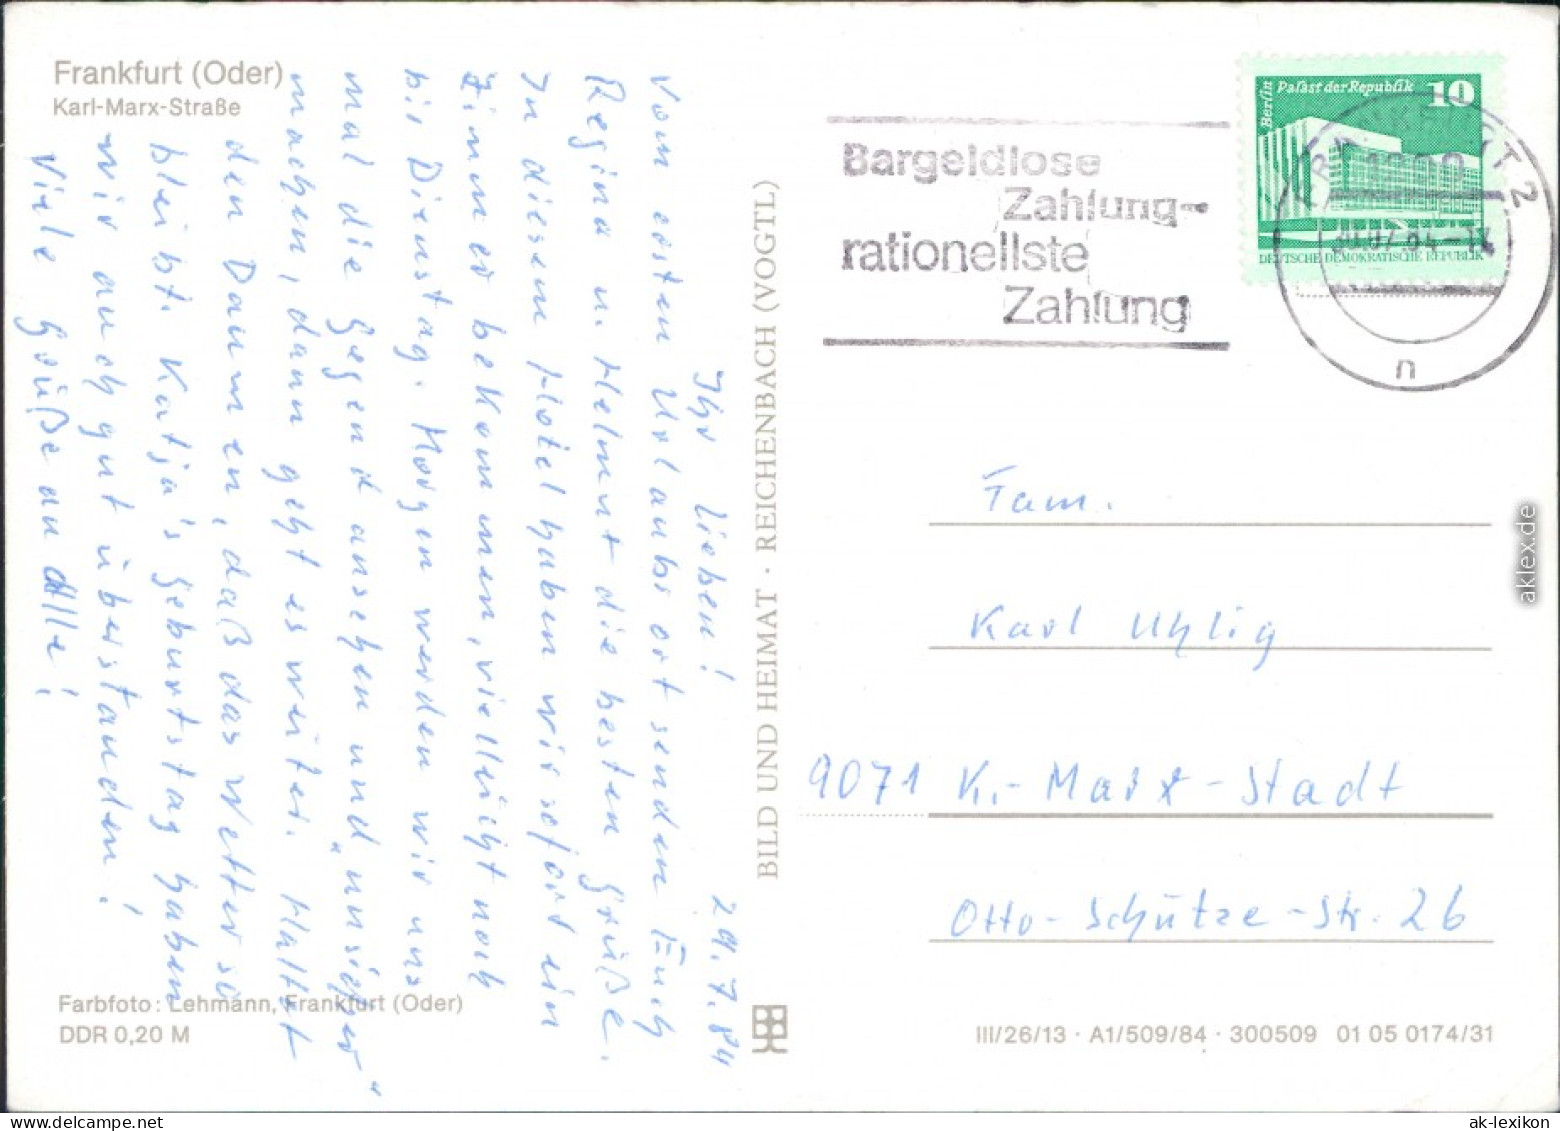 Frankfurt (Oder)
Karl-Marx-Straße
29.7.84
Ihr Lieben!
Vom ersten Urlaubsort senden Euch
Regina u. Helmut die besten Grüße.
In diesem Hotel haben wir sofort ein
Zimmer bekommen, vielleicht noch
bis Dienstag. Morgen werden wir uns
mal die Gegend ansehen und „unsicher“
machen, dann geht es weiter. Haltet
den Daumen, daß das Wetter so
bleibt. Katja's Geburtstag haben
wir auch gut überstanden!
Viele Grüße an Alle!
Farbfoto: Lehmann, Frankfurt (Oder)
DDR 0,20 M
BILD UND HEIMAT · REICHENBACH (VOGTL)
Bargeldlose
Zahlung-
rationellste
Zahlung
Berlin
Palast der Republik 10
DEUTSCHE DEMOKRATISCHE REPUBLIK
n
Fam.
Karl Uhlig
9071 K.-Marx-Stadt
Otto-Schütze-Str. 26
III/26/13 · A1/509/84 · 300509 01 05 0174/31
aklex.de
ak-lexikon